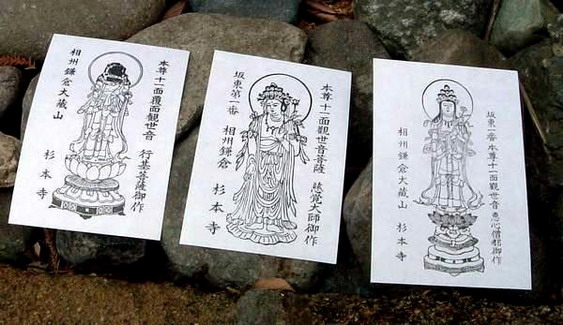 本尊十一面覆面觀世音 行基菩薩御作
相州鎌倉大藏山 杉本寺
本尊十一面觀世音菩薩 慈覺大師御作
坂東第一番 相州鎌倉 杉本寺
坂東一番 本尊十一面觀世音 恵心僧都御作
相州鎌倉大藏山 杉本寺